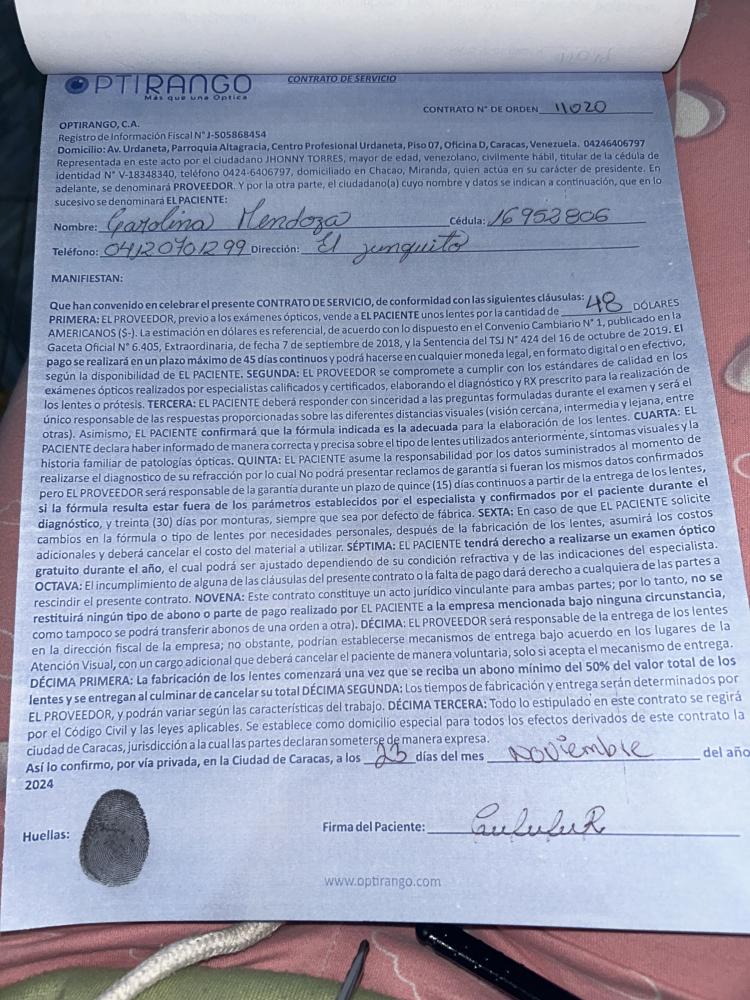 OPTIRANGO
Más que una Optica
CONTRATO DE SERVICIO
CONTRATO N° DE ORDEN 11020
OPTIRANGO, C.A.
Registro de Información Fiscal N° J-505868454
Domicilio: Av. Urdaneta, Parroquia Altagracia, Centro Profesional Urdaneta, Piso 07, Oficina D, Caracas, Venezuela. 04246406797
Representada en este acto por el ciudadano JHONNY TORRES, mayor de edad, venezolano, civilmente hábil, titular de la cédula de
identidad N° V-18348340, teléfono 0424-6406797, domiciliado en Chacao, Miranda, quien actúa en su carácter de presidente. En
adelante, se denominará PROVEEDOR. Y por la otra parte, el ciudadano(a) cuyo nombre y datos se indican a continuación, que en lo
sucesivo se denominará EL PACIENTE:
Nombre: Carolina Mendoza Cédula: 16952806
Teléfono: 04120701299 Dirección: El junquito
MANIFIESTAN:
Que han convenido en celebrar el presente CONTRATO DE SERVICIO, de conformidad con las siguientes cláusulas:
PRIMERA: EL PROVEEDOR, previo a los exámenes ópticos, vende a EL PACIENTE unos lentes por la cantidad de 48 DÓLARES
AMERICANOS ($-). La estimación en dólares es referencial, de acuerdo con lo dispuesto en el Convenio Cambiario N° 1, publicado en la
Gaceta Oficial N° 6.405, Extraordinaria, de fecha 7 de septiembre de 2018, y la Sentencia del TSJ N° 424 del 16 de octubre de 2019. El
pago se realizará en un plazo máximo de 45 días continuos y podrá hacerse en cualquier moneda legal, en formato digital o en efectivo,
según la disponibilidad de EL PACIENTE. SEGUNDA: EL PROVEEDOR se compromete a cumplir con los estándares de calidad en los
exámenes ópticos realizados por especialistas calificados y certificados, elaborando el diagnóstico y RX prescrito para la realización de
los lentes o prótesis. TERCERA: EL PACIENTE deberá responder con sinceridad a las preguntas formuladas durante el examen y será el
único responsable de las respuestas proporcionadas sobre las diferentes distancias visuales (visión cercana, intermedia y lejana, entre
otras). Asimismo, EL PACIENTE confirmará que la fórmula indicada es la adecuada para la elaboración de los lentes. CUARTA: EL
PACIENTE declara haber informado de manera correcta y precisa sobre el tipo de lentes utilizados anteriormente, síntomas visuales y la
historia familiar de patologías ópticas. QUINTA: EL PACIENTE asume la responsabilidad por los datos suministrados al momento de
realizarse el diagnostico de su refracción por lo cual No podrá presentar reclamos de garantía si fueran los mismos datos confirmados
pero EL PROVEEDOR será responsable de la garantía durante un plazo de quince (15) días continuos a partir de la entrega de los lentes,
si la fórmula resulta estar fuera de los parámetros establecidos por el especialista y confirmados por el paciente durante el
diagnóstico, y treinta (30) días por monturas, siempre que sea por defecto de fábrica. SEXTA: En caso de que EL PACIENTE solicite
cambios en la fórmula o tipo de lentes por necesidades personales, después de la fabricación de los lentes, asumirá los costos
adicionales y deberá cancelar el costo del material a utilizar. SÉPTIMA: EL PACIENTE tendrá derecho a realizarse un examen óptico
gratuito durante el año, el cual podrá ser ajustado dependiendo de su condición refractiva y de las indicaciones del especialista.
OCTAVA: El incumplimiento de alguna de las cláusulas del presente contrato o la falta de pago dará derecho a cualquiera de las partes a
rescindir el presente contrato. NOVENA: Este contrato constituye un acto jurídico vinculante para ambas partes; por lo tanto, no se
restituirá ningún tipo de abono o parte de pago realizado por EL PACIENTE a la empresa mencionada bajo ninguna circunstancia,
como tampoco se podrá transferir abonos de una orden a otra). DÉCIMA: EL PROVEEDOR será responsable de la entrega de los lentes
en la dirección fiscal de la empresa; no obstante, podrían establecerse mecanismos de entrega bajo acuerdo en los lugares de la
Atención Visual, con un cargo adicional que deberá cancelar el paciente de manera voluntaria, solo si acepta el mecanismo de entrega.
DÉCIMA PRIMERA: La fabricación de los lentes comenzará una vez que se reciba un abono mínimo del 50% del valor total de los
lentes y se entregan al culminar de cancelar su total DÉCIMA SEGUNDA: Los tiempos de fabricación y entrega serán determinados por
EL PROVEEDOR, y podrán variar según las características del trabajo. DÉCIMA TERCERA: Todo lo estipulado en este contrato se regirá
por el Código Civil y las leyes aplicables. Se establece como domicilio especial para todos los efectos derivados de este contrato la
ciudad de Caracas, jurisdicción a la cual las partes declaran someterse de manera expresa.
Así lo confirmo, por vía privada, en la Ciudad de Caracas, a los 23 días del mes Noviembre del año
2024
Huellas:
Firma del Paciente:
www.optirango.com